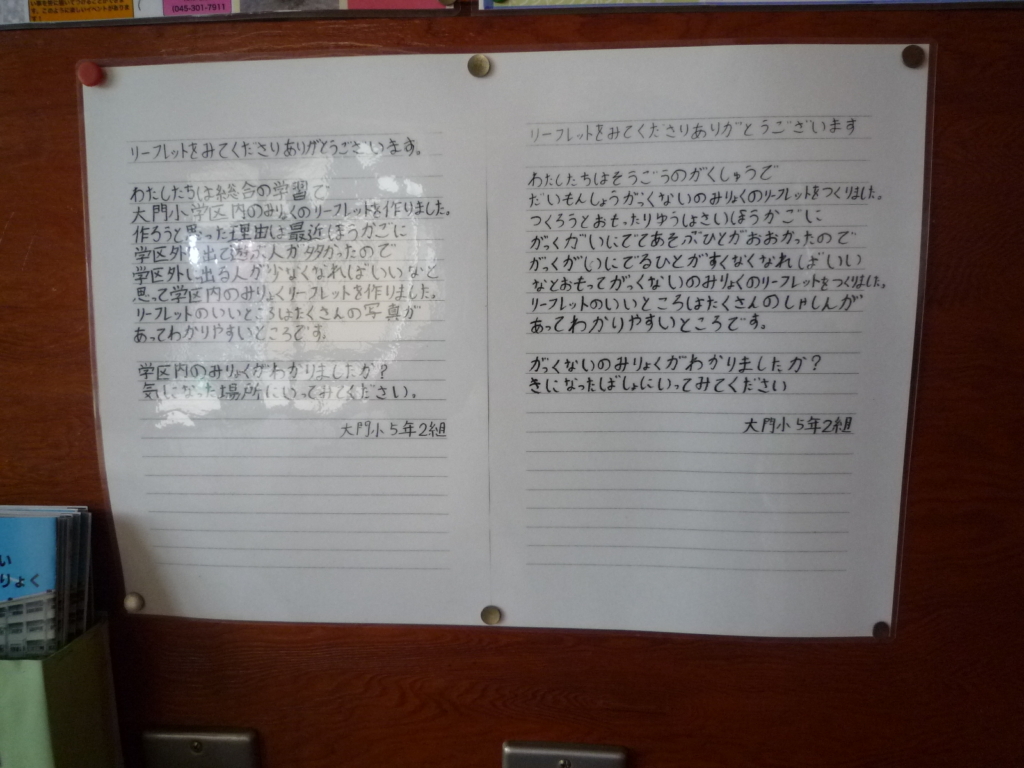 (045-301-7911
リーフレットをみてくださりありがとうございます。
わたしたちは総合の学習で
大門小学区内のみりょくのリーフレットを作りました。
作ろうと思った理由は最近ほうかごに
学区外に出て遊ぶ人が多かったので
学区外に出る人が少なくなればいいなと
思って学区内のみりょくリーフレットを作りました。
リーフレットのいいところはたくさんの写真が
あってわかりやすいところです。
学区内のみりょくがわかりましたか?
気になった場所にいってみてください。
大門小5年2組
リーフレットをみてくださりありがとうございます
わたしたちはそうごうのがくしゅうで
だいもんしょうがっくないのみりょくのリーフレットをつくりました。
つくろうとおもったりゆうはさいきんほうかごに
がっくがいにでてあそぶひとがおおかったので
がっくがいにでるひとがすくなくなればいい
なとおもってがっくないのみりょくのリーフレットをつくりました。
リーフレットのいいところはたくさんのしゃしんが
あってわかりやすいところです。
がっくないのみりょくがわかりましたか?
きになったばしょにいってみてください
大門小5年2組
い
りょく